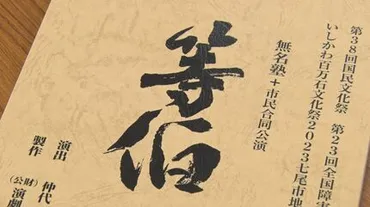 第38回国民文化祭 第23回全国障害
いしかわ百万石文化祭2023七尾市地
無名塾＋市民合同公演
等伯
演出 仲代
製作 (公財)演劇